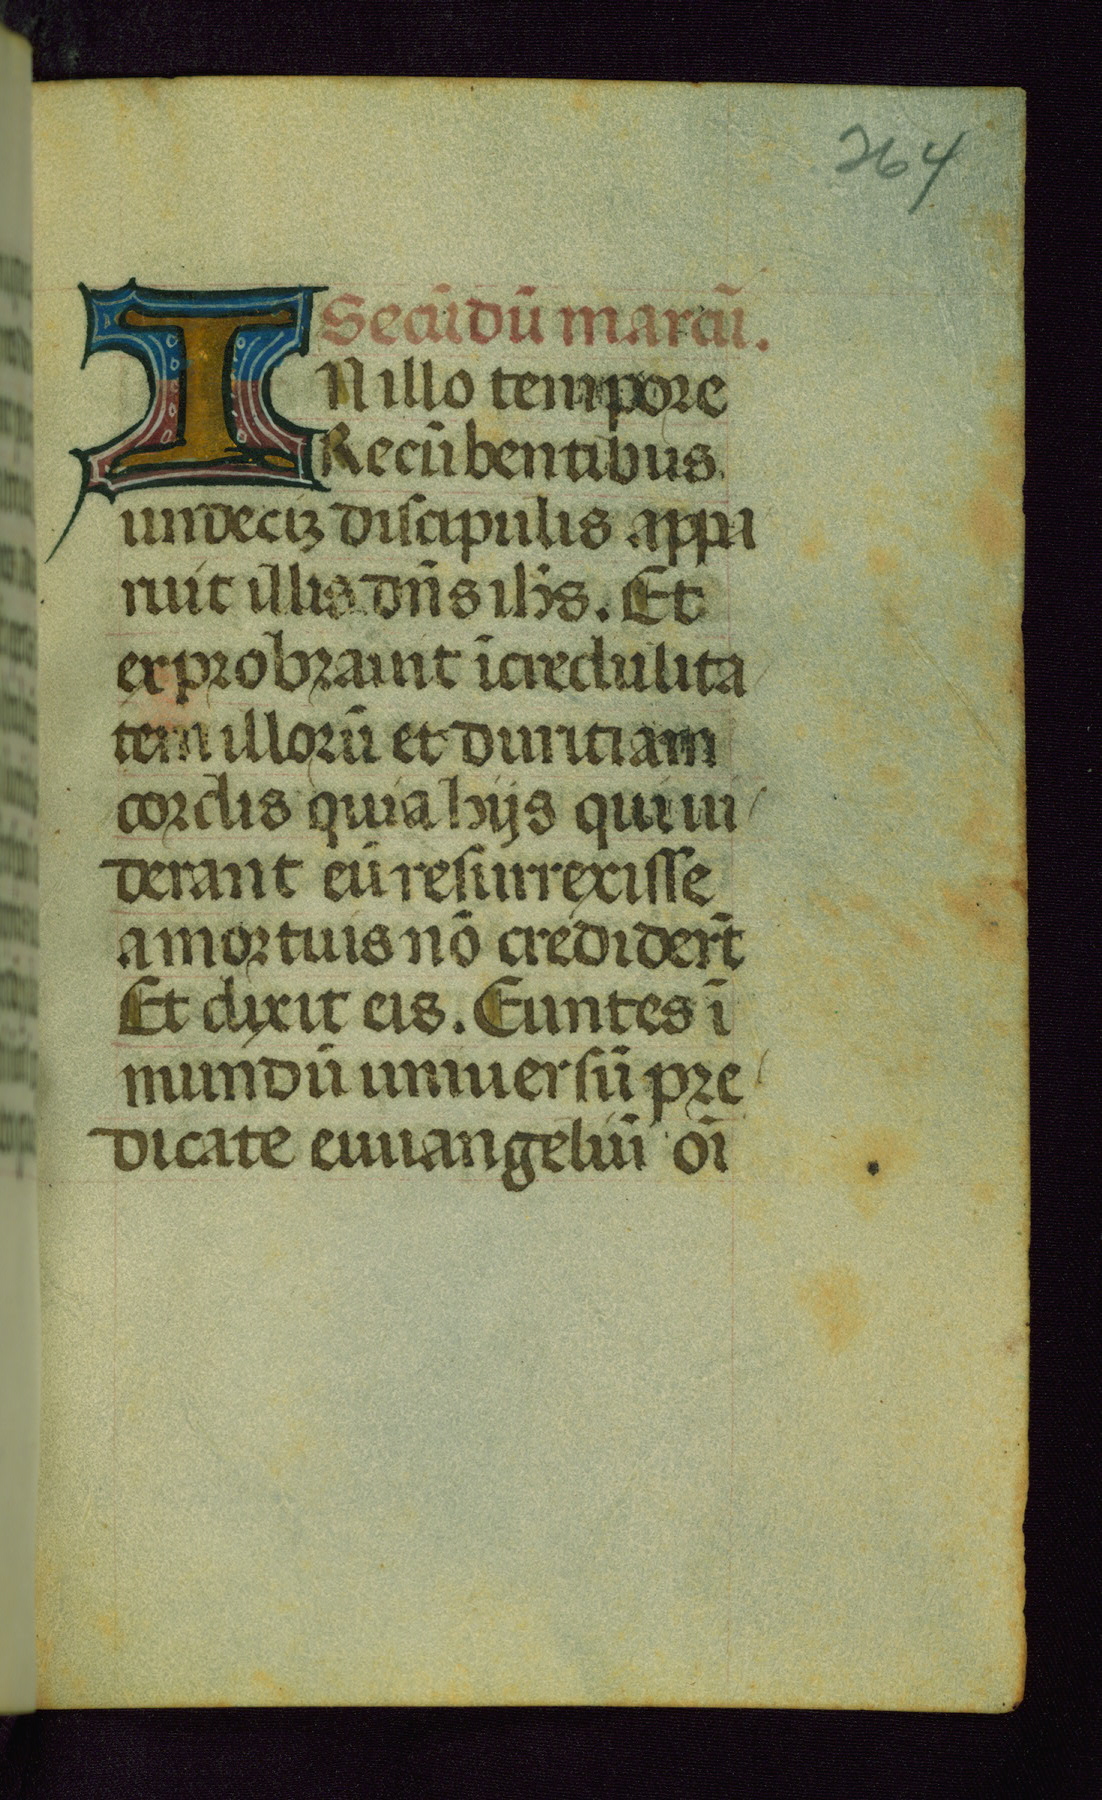 264
Secūdū marcū.
IN illo tempore
Recūbentibus
undeciʒ discipulis appa
ruit illis dn̄s ih̄s. Et
exprobrauit īcredulita
tem illorū et duritiam
cordis quia hijs qui ui
derant eū resurrexisse
a mortuis nō credider̄t
Et dixit eis. Euntes ī
mundū uniuersū pre
dicate euuangeliū oī